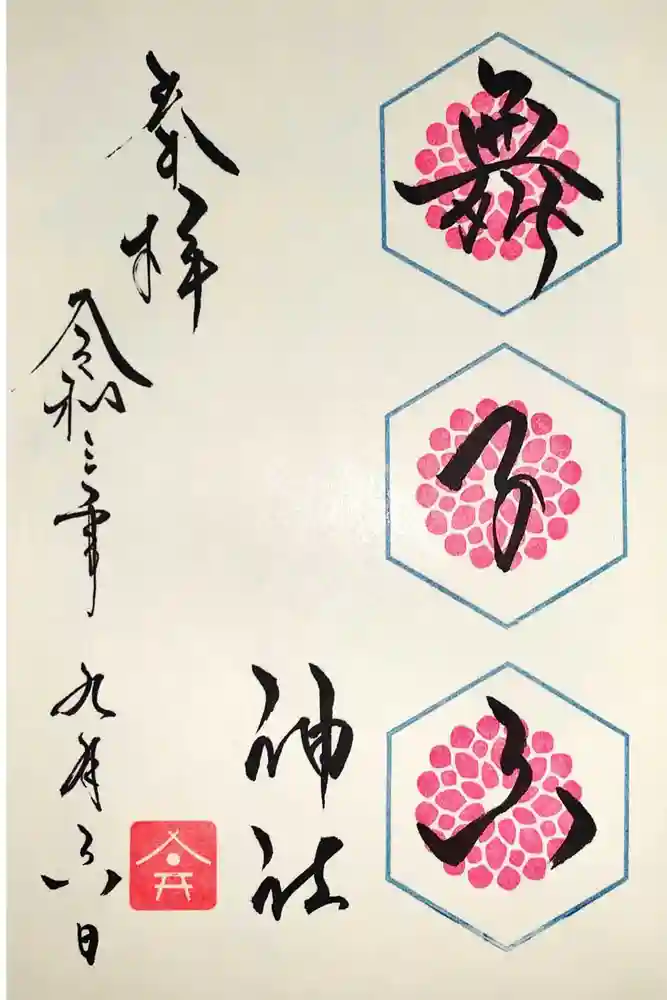 舞子六
神社
奉拝
令和三年九月六日